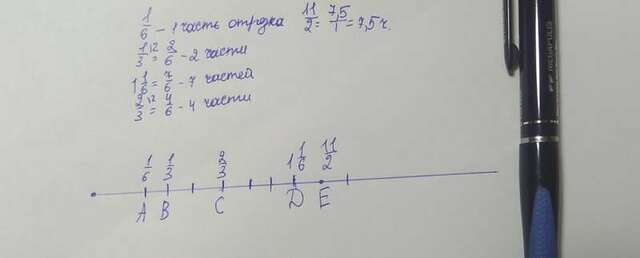 1/6 - 1 часть отрезка 11/2 = 7,5/1 = 7,5 ч.
1/3 \2 = 2/6 - 2 части
1 1/6 = 7/6 - 7 частей
2/3 \2 = 4/6 - 4 части
1/6 1/3 2/3 1 1/6 11/2
A B C D E